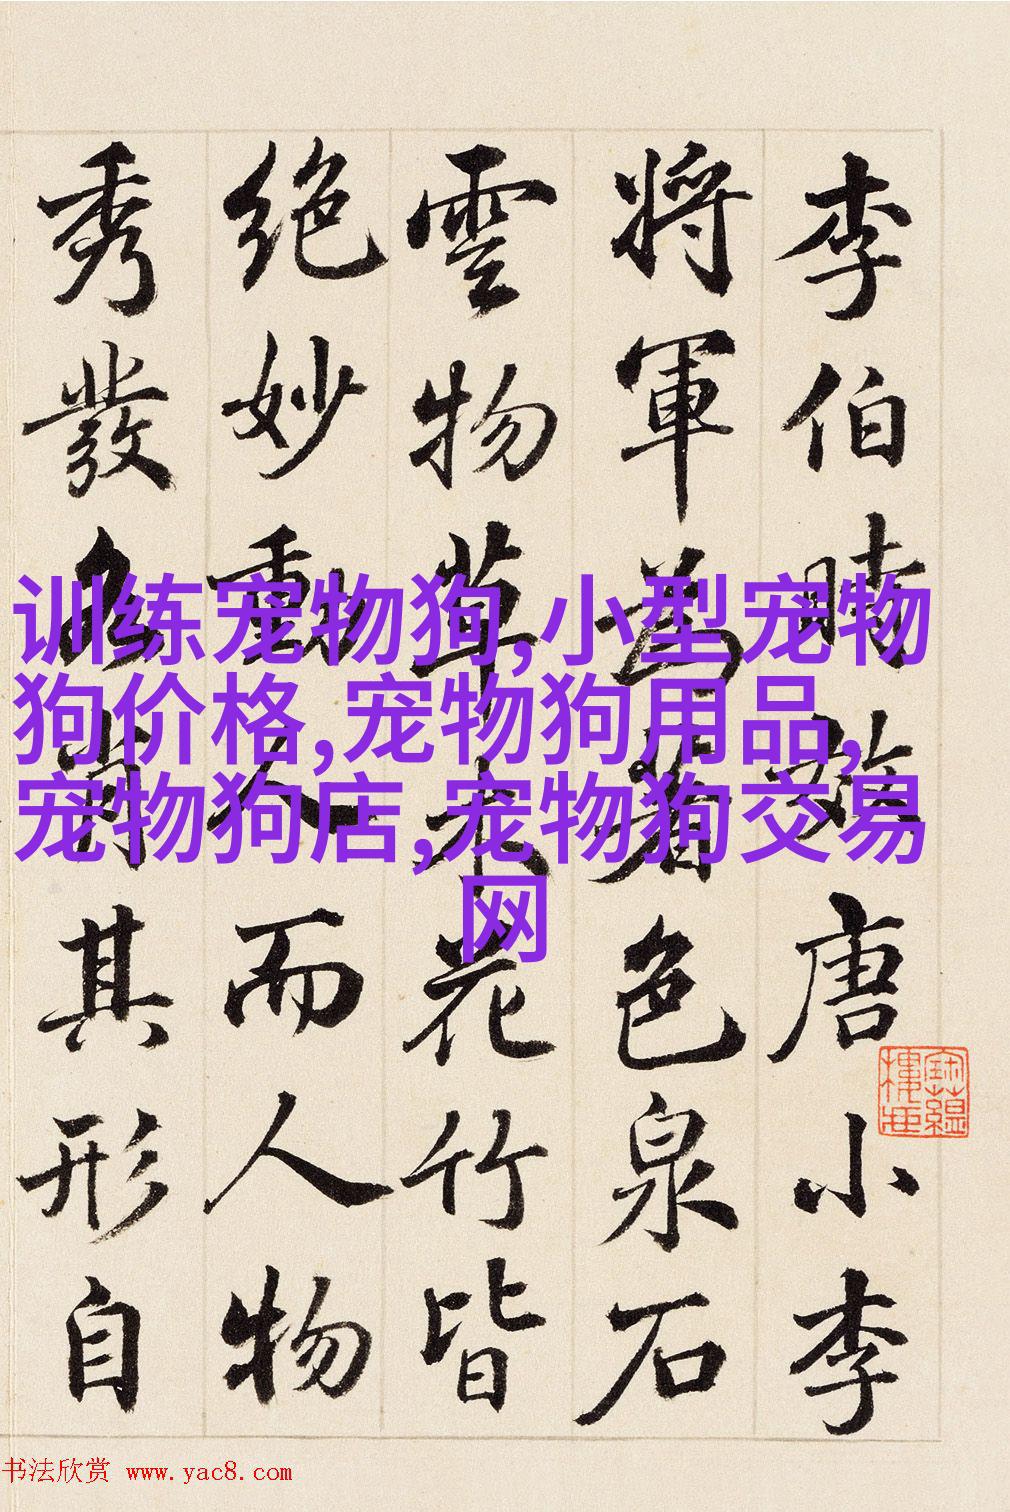 李伯時效唐小李
將軍為著色泉石
雲物草木花竹皆
絶妙動人而人物
秀發各肖其形自
训练宠物狗,小型宠物
狗价格,宠物狗用品,
宠物狗店,宠物狗交易
网
书法欣赏 www.yac8.com